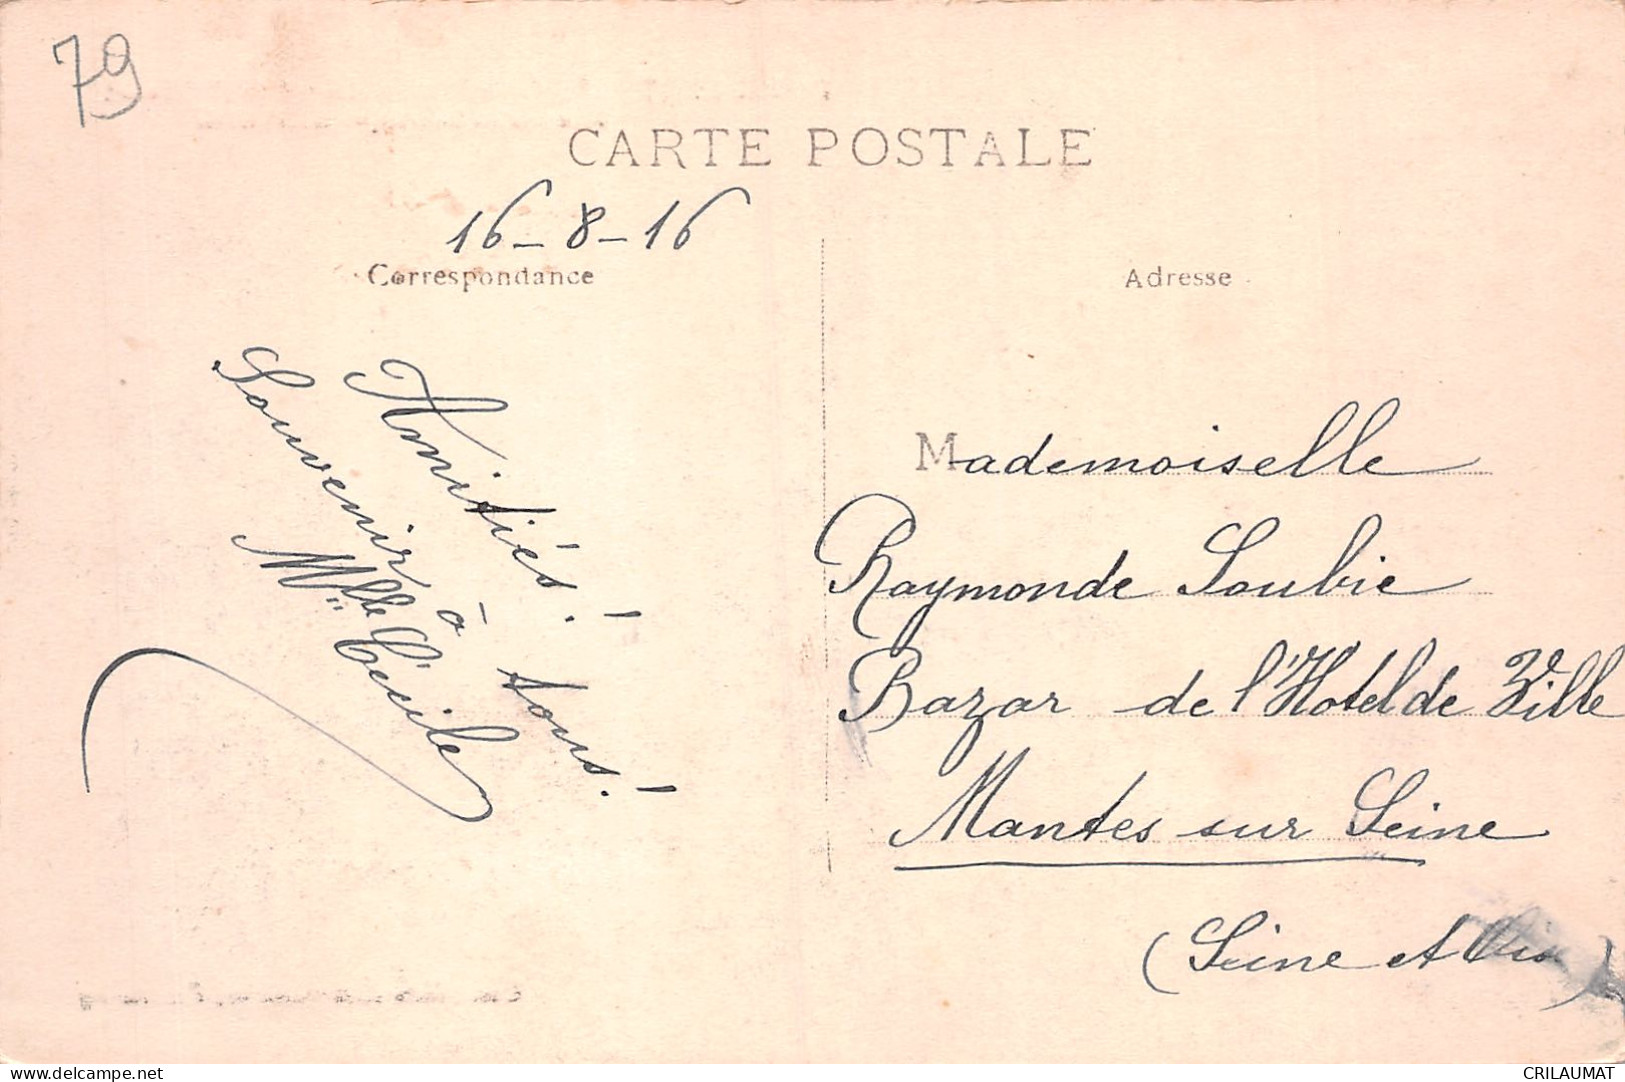 79
CARTE POSTALE
16-8-16
Correspondance
Adresse
Amitiés!
Souvenir à tous!
Mlle Cécile
Mademoiselle
Raymonde Soubie
Bazar de l'Hotel de Ville
Mantes sur Seine
(Seine et Oise)
delcampe.net
CRILAUMAT